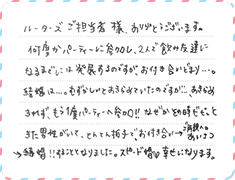 ルーターズ ご担当者 様、ありがとうございます。
何度かパーティーに参加し、2人で飲みな達に
なるまでには 発展するのですが、お付き合いどまり…。
結婚は…。むずかしいとあきらめていたのですが…。あきらめ
きれず、もう1度パーティーへ参加!! なぜかその時ビビッと
きた男性がいて、とんとん拍子でお付き合い→ ご両親へのあいさつ
→結婚!! することとなりました。スピード婚♡幸せになります。